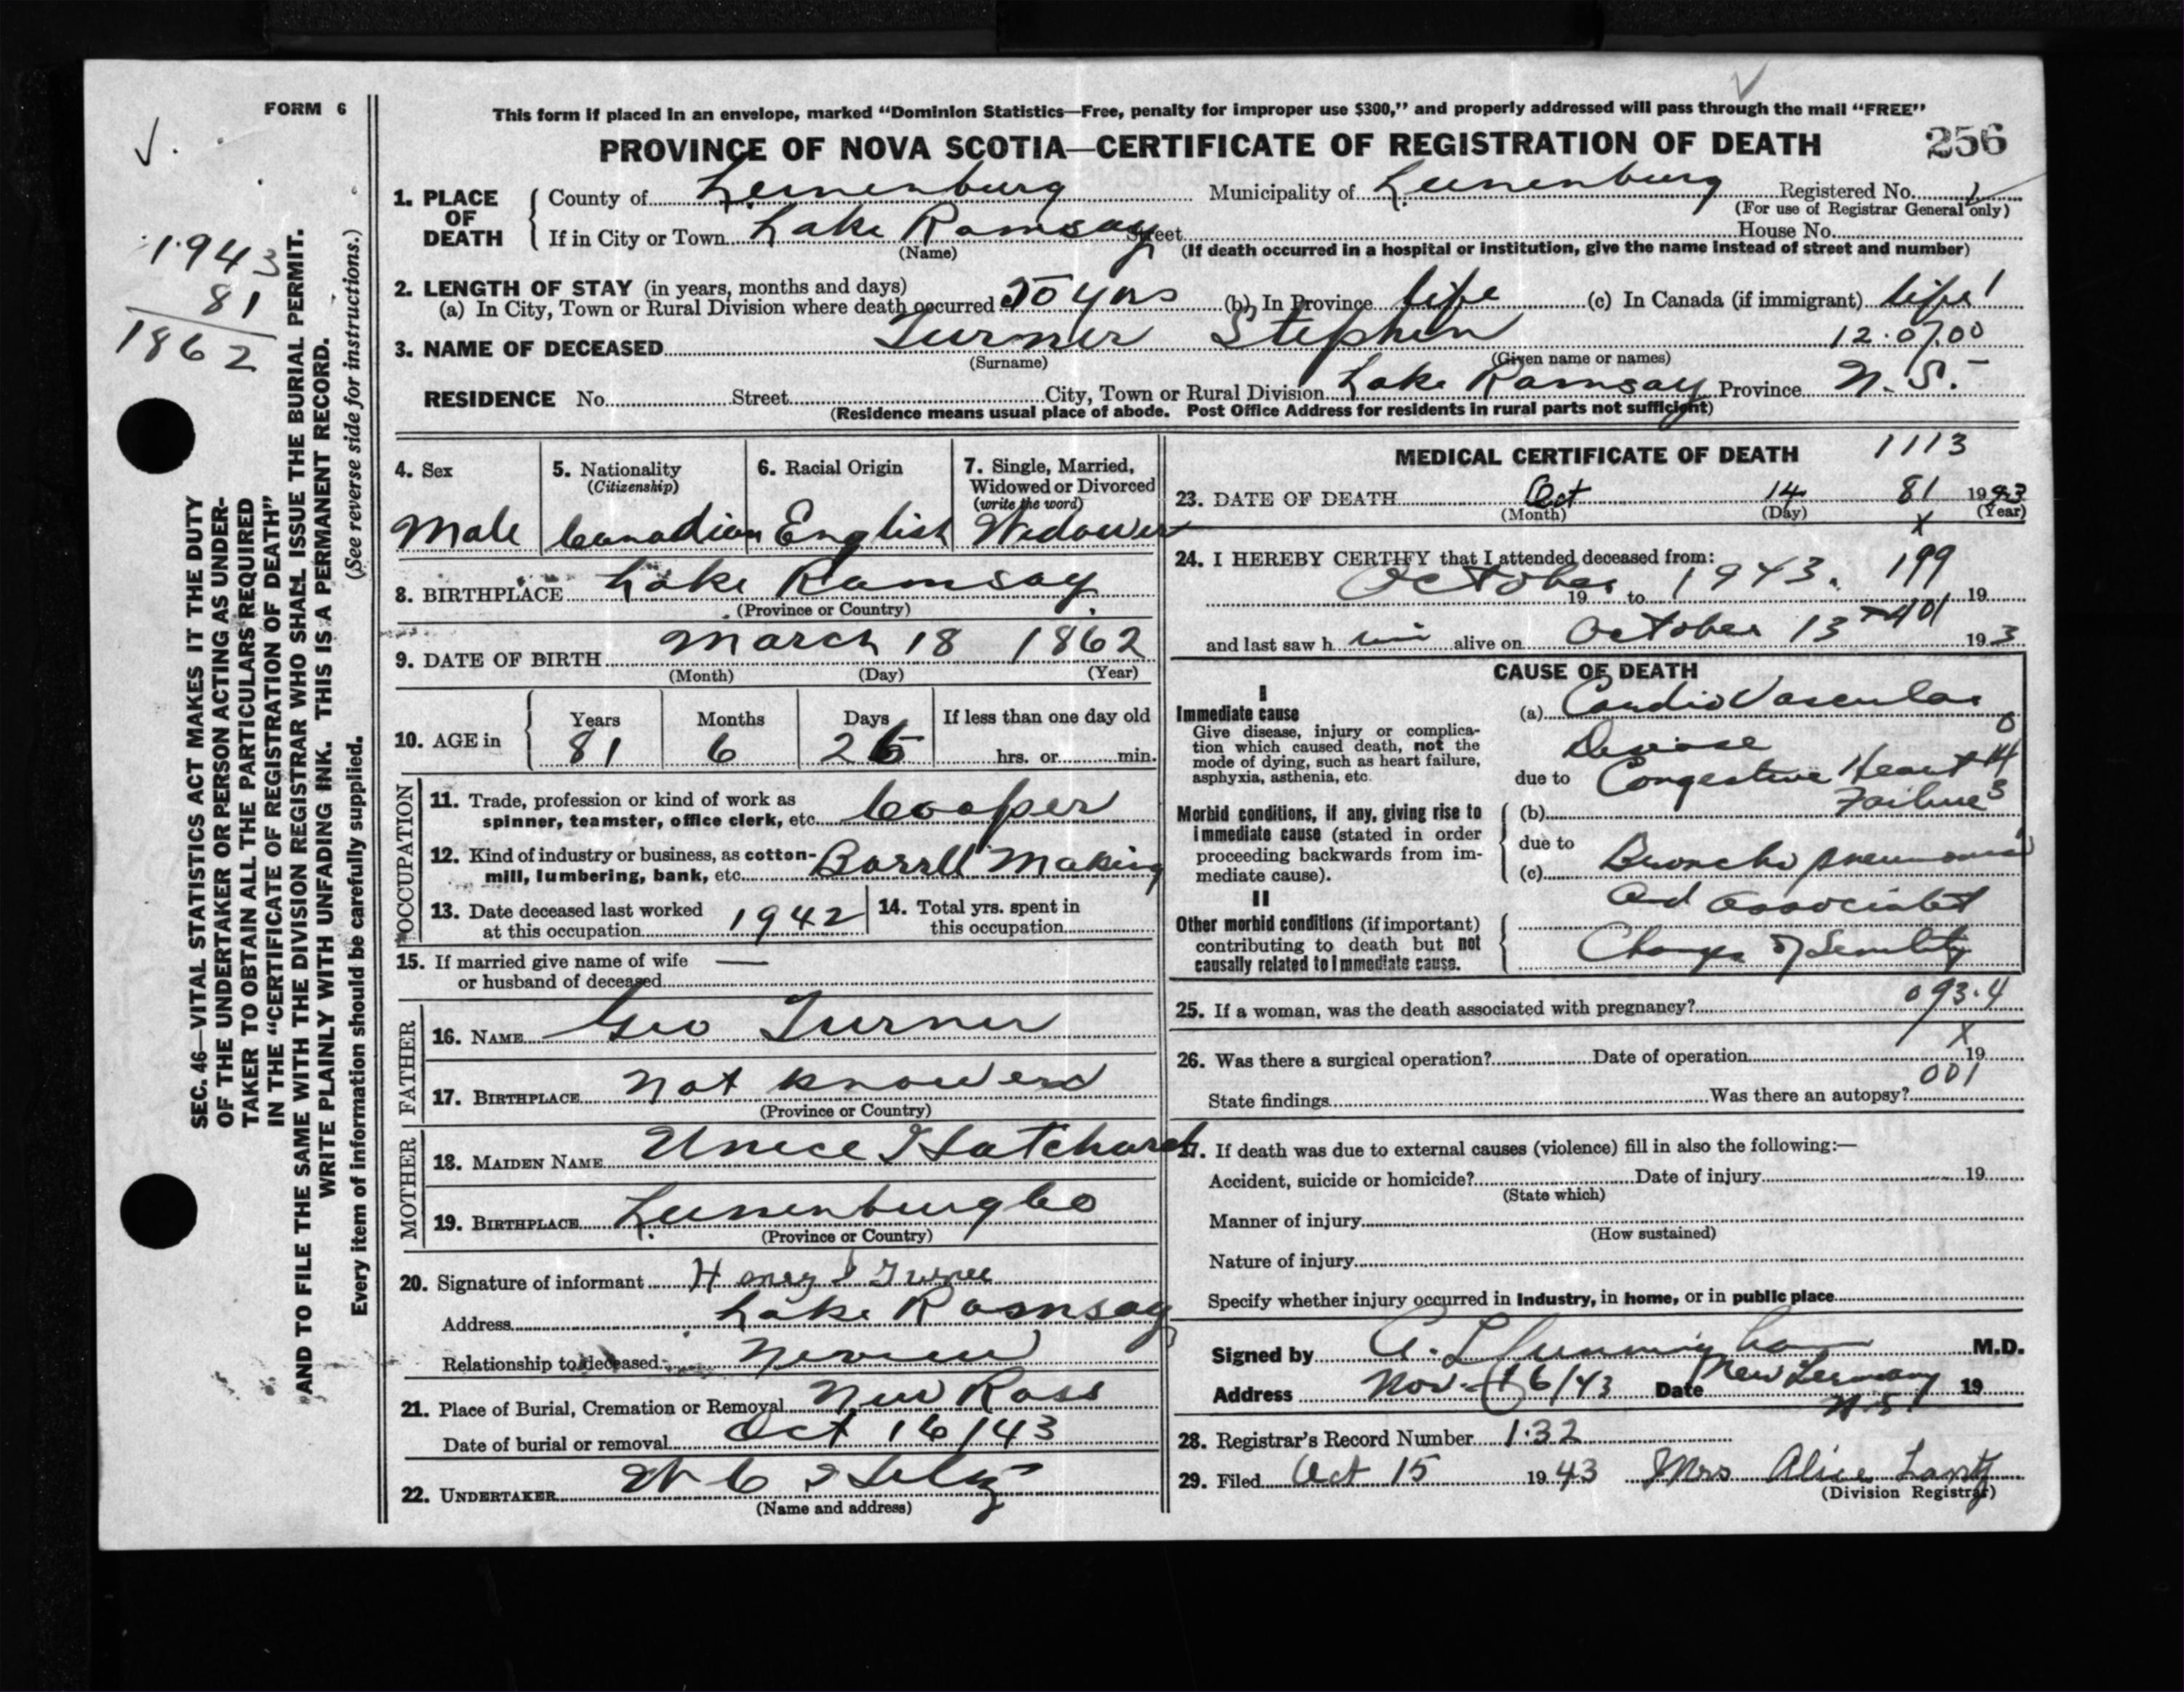 FORM 6
This form if placed in an envelope, marked “Dominion Statistics—Free, penalty for improper use $300,” and properly addressed will pass through the mail “FREE”
PROVINCE OF NOVA SCOTIA—CERTIFICATE OF REGISTRATION OF DEATH
256
1943
81
1862
SEC. 46—VITAL STATISTICS ACT MAKES IT THE DUTY
OF THE UNDERTAKER OR PERSON ACTING AS UNDER-
TAKER TO OBTAIN ALL THE PARTICULARS REQUIRED
IN THE “CERTIFICATE OF REGISTRATION OF DEATH”
AND TO FILE THE SAME WITH THE DIVISION REGISTRAR WHO SHALL ISSUE THE BURIAL PERMIT.
WRITE PLAINLY WITH UNFADING INK. THIS IS A PERMANENT RECORD.
Every item of information should be carefully supplied. (See reverse side for instructions.)
1. PLACE OF DEATH
County of Lunenburg Municipality of Lunenburg Registered No.
(For use of Registrar General only)
If in City or Town Lake Ramsay Street House No.
(Name) (If death occurred in a hospital or institution, give the name instead of street and number)
2. LENGTH OF STAY (in years, months and days)
(a) In City, Town or Rural Division where death occurred yrs (b) In Province life (c) In Canada (if immigrant) life
3. NAME OF DECEASED Turner Stephen 12.0700
(Surname) (Given name or names)
RESIDENCE No. Street City, Town or Rural Division Lake Ramsay Province N.S.
(Residence means usual place of abode. Post Office Address for residents in rural parts not sufficient)
4. Sex
Male
5. Nationality
(Citizenship)
Canadian
6. Racial Origin
English
7. Single, Married,
Widowed or Divorced
(write the word)
Widower
8. BIRTHPLACE Lake Ramsay
(Province or Country)
9. DATE OF BIRTH March 18 1862
(Month) (Day) (Year)
10. AGE in
Years Months Days If less than one day old
81 6 26 hrs. or min.
OCCUPATION
11. Trade, profession or kind of work as
spinner, teamster, office clerk, etc. Cooper
12. Kind of industry or business, as cotton-
mill, lumbering, bank, etc. Barrell Making
13. Date deceased last worked
at this occupation 1942
14. Total yrs. spent in
this occupation
15. If married give name of wife —
or husband of deceased
FATHER
16. NAME Geo Turner
17. BIRTHPLACE not knowend
(Province or Country)
MOTHER
18. MAIDEN NAME Unece Hatchard
19. BIRTHPLACE Lunenburg Co
(Province or Country)
20. Signature of informant
Address Lake Ramsay
Relationship to deceased
21. Place of Burial, Cremation or Removal New Ross
Date of burial or removal Oct 16/43
22. UNDERTAKER
(Name and address)
MEDICAL CERTIFICATE OF DEATH 1113
23. DATE OF DEATH Oct 14 81 1943
(Month) (Day) (Year)
X
24. I HEREBY CERTIFY that I attended deceased from:
October 19 to 1943. 199 19
and last saw h im alive on October 13 19 3
401
CAUSE OF DEATH
I
Immediate cause
Give disease, injury or complica-
tion which caused death, not the
mode of dying, such as heart failure,
asphyxia, asthenia, etc.
(a) Cardio Vascular
Disease
due to Congestive Heart
Failure
Morbid conditions, if any, giving rise to
immediate cause (stated in order
proceeding backwards from im-
mediate cause).
(b)
due to
(c) Broncho pneumonia
II
Other morbid conditions (if important)
contributing to death but not
causally related to immediate cause.
and associated
Changes of Senility
25. If a woman, was the death associated with pregnancy? 093.4
X
26. Was there a surgical operation? Date of operation 19
001
State findings Was there an autopsy?
27. If death was due to external causes (violence) fill in also the following:—
Accident, suicide or homicide? Date of injury 19
(State which)
Manner of injury
(How sustained)
Nature of injury
Specify whether injury occurred in Industry, in home, or in public place
Signed by M.D.
Address Nov. 6/43 Date New Germany 19
N.S.
28. Registrar's Record Number 132
29. Filed Oct 15 1943 Mrs Alice Lantz
(Division Registrar)